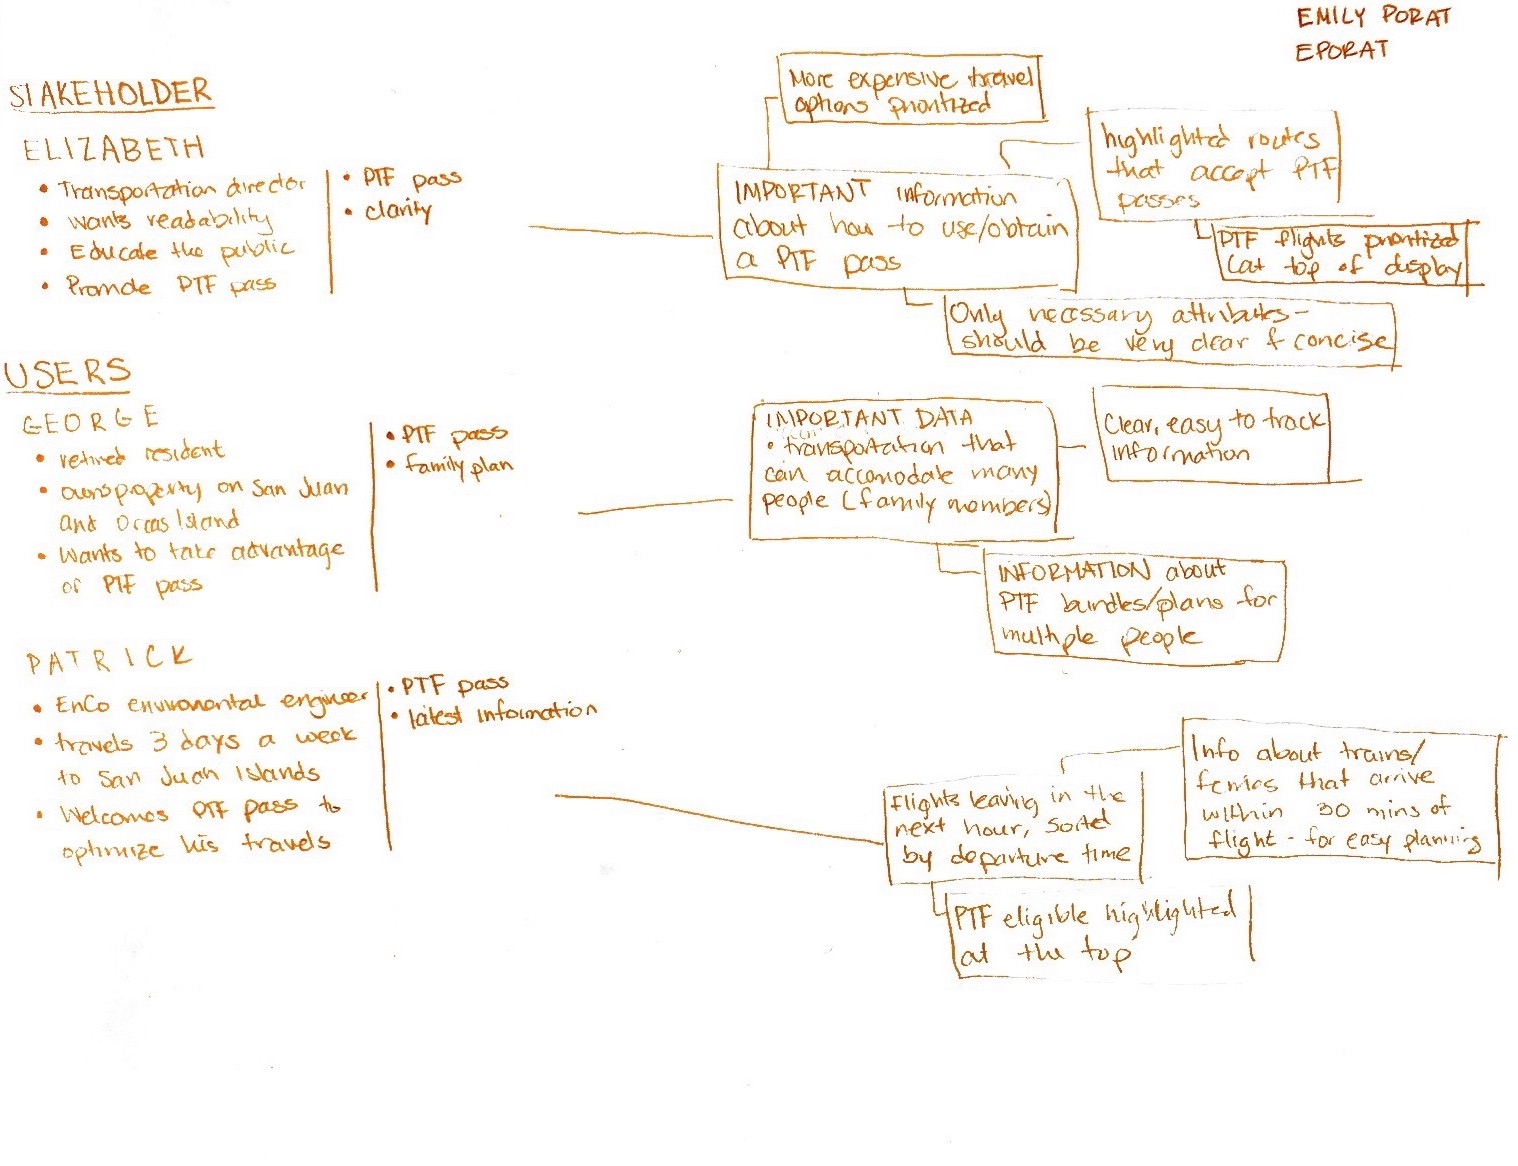 EMILY PORAT
EPORAT
STAKEHOLDER
ELIZABETH
• Transportation director
• wants readability
• Educate the public
• Promote PTF pass
• PTF pass
• clarity
More expensive travel
options prioritized
IMPORTANT information
about how to use/obtain
a PTF pass
highlighted routes
that accept PTF
passes
PTF flights prioritized
(at top of display
Only necessary attributes -
should be very clear & concise
USERS
GEORGE
• retired resident
• owns property on San Juan
and Orcas Island
• Wants to take advantage
of PTF pass
• PTF pass
• family plan
IMPORTANT DATA
• transportation that
can accomodate many
people (family members)
Clear, easy to track
information
INFORMATION about
PTF bundles/plans for
multiple people
PATRICK
• EnCo enviromental engineer
• travels 3 days a week
to San Juan Islands
• Welcomes PTF pass to
optimize his travels
• PTF pass
• latest information
flights leaving in the
next hour, sorted
by departure time
Info about trains/
ferries that arrive
within 30 mins of
flight - for easy planning
PTF eligible highlighted
at the top